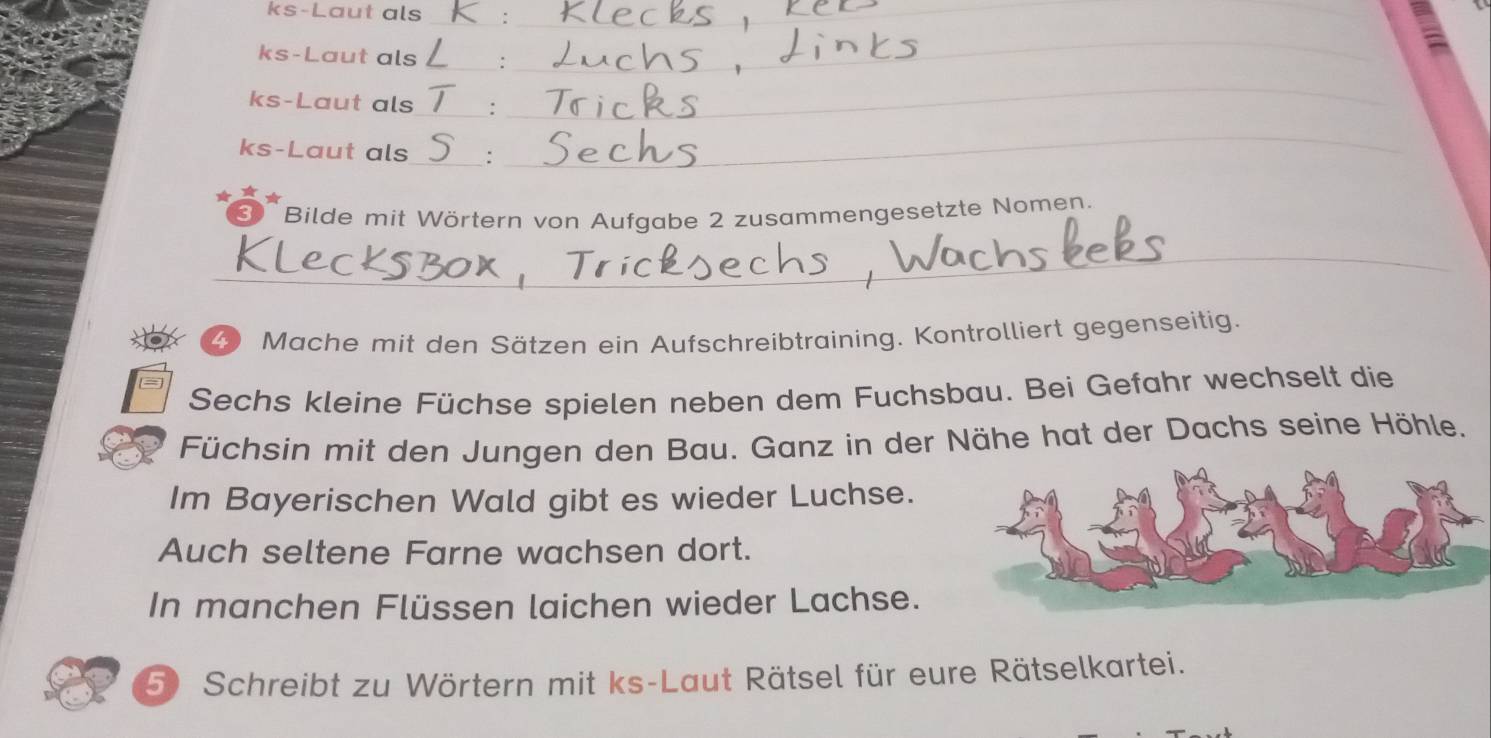 ks-Laut als K : Klecks,
ks-Laut als L : Luchs, Links
ks-Laut als T : Tricks
ks-Laut als S : Sechs
3 Bilde mit Wörtern von Aufgabe 2 zusammengesetzte Nomen.
KlecksBox, Tricksechs, Wachskeks
4 Mache mit den Sätzen ein Aufschreibtraining. Kontrolliert gegenseitig.
Sechs kleine Füchse spielen neben dem Fuchsbau. Bei Gefahr wechselt die
Füchsin mit den Jungen den Bau. Ganz in der Nähe hat der Dachs seine Höhle.
Im Bayerischen Wald gibt es wieder Luchse.
Auch seltene Farne wachsen dort.
In manchen Flüssen laichen wieder Lachse.
5 Schreibt zu Wörtern mit ks-Laut Rätsel für eure Rätselkartei.